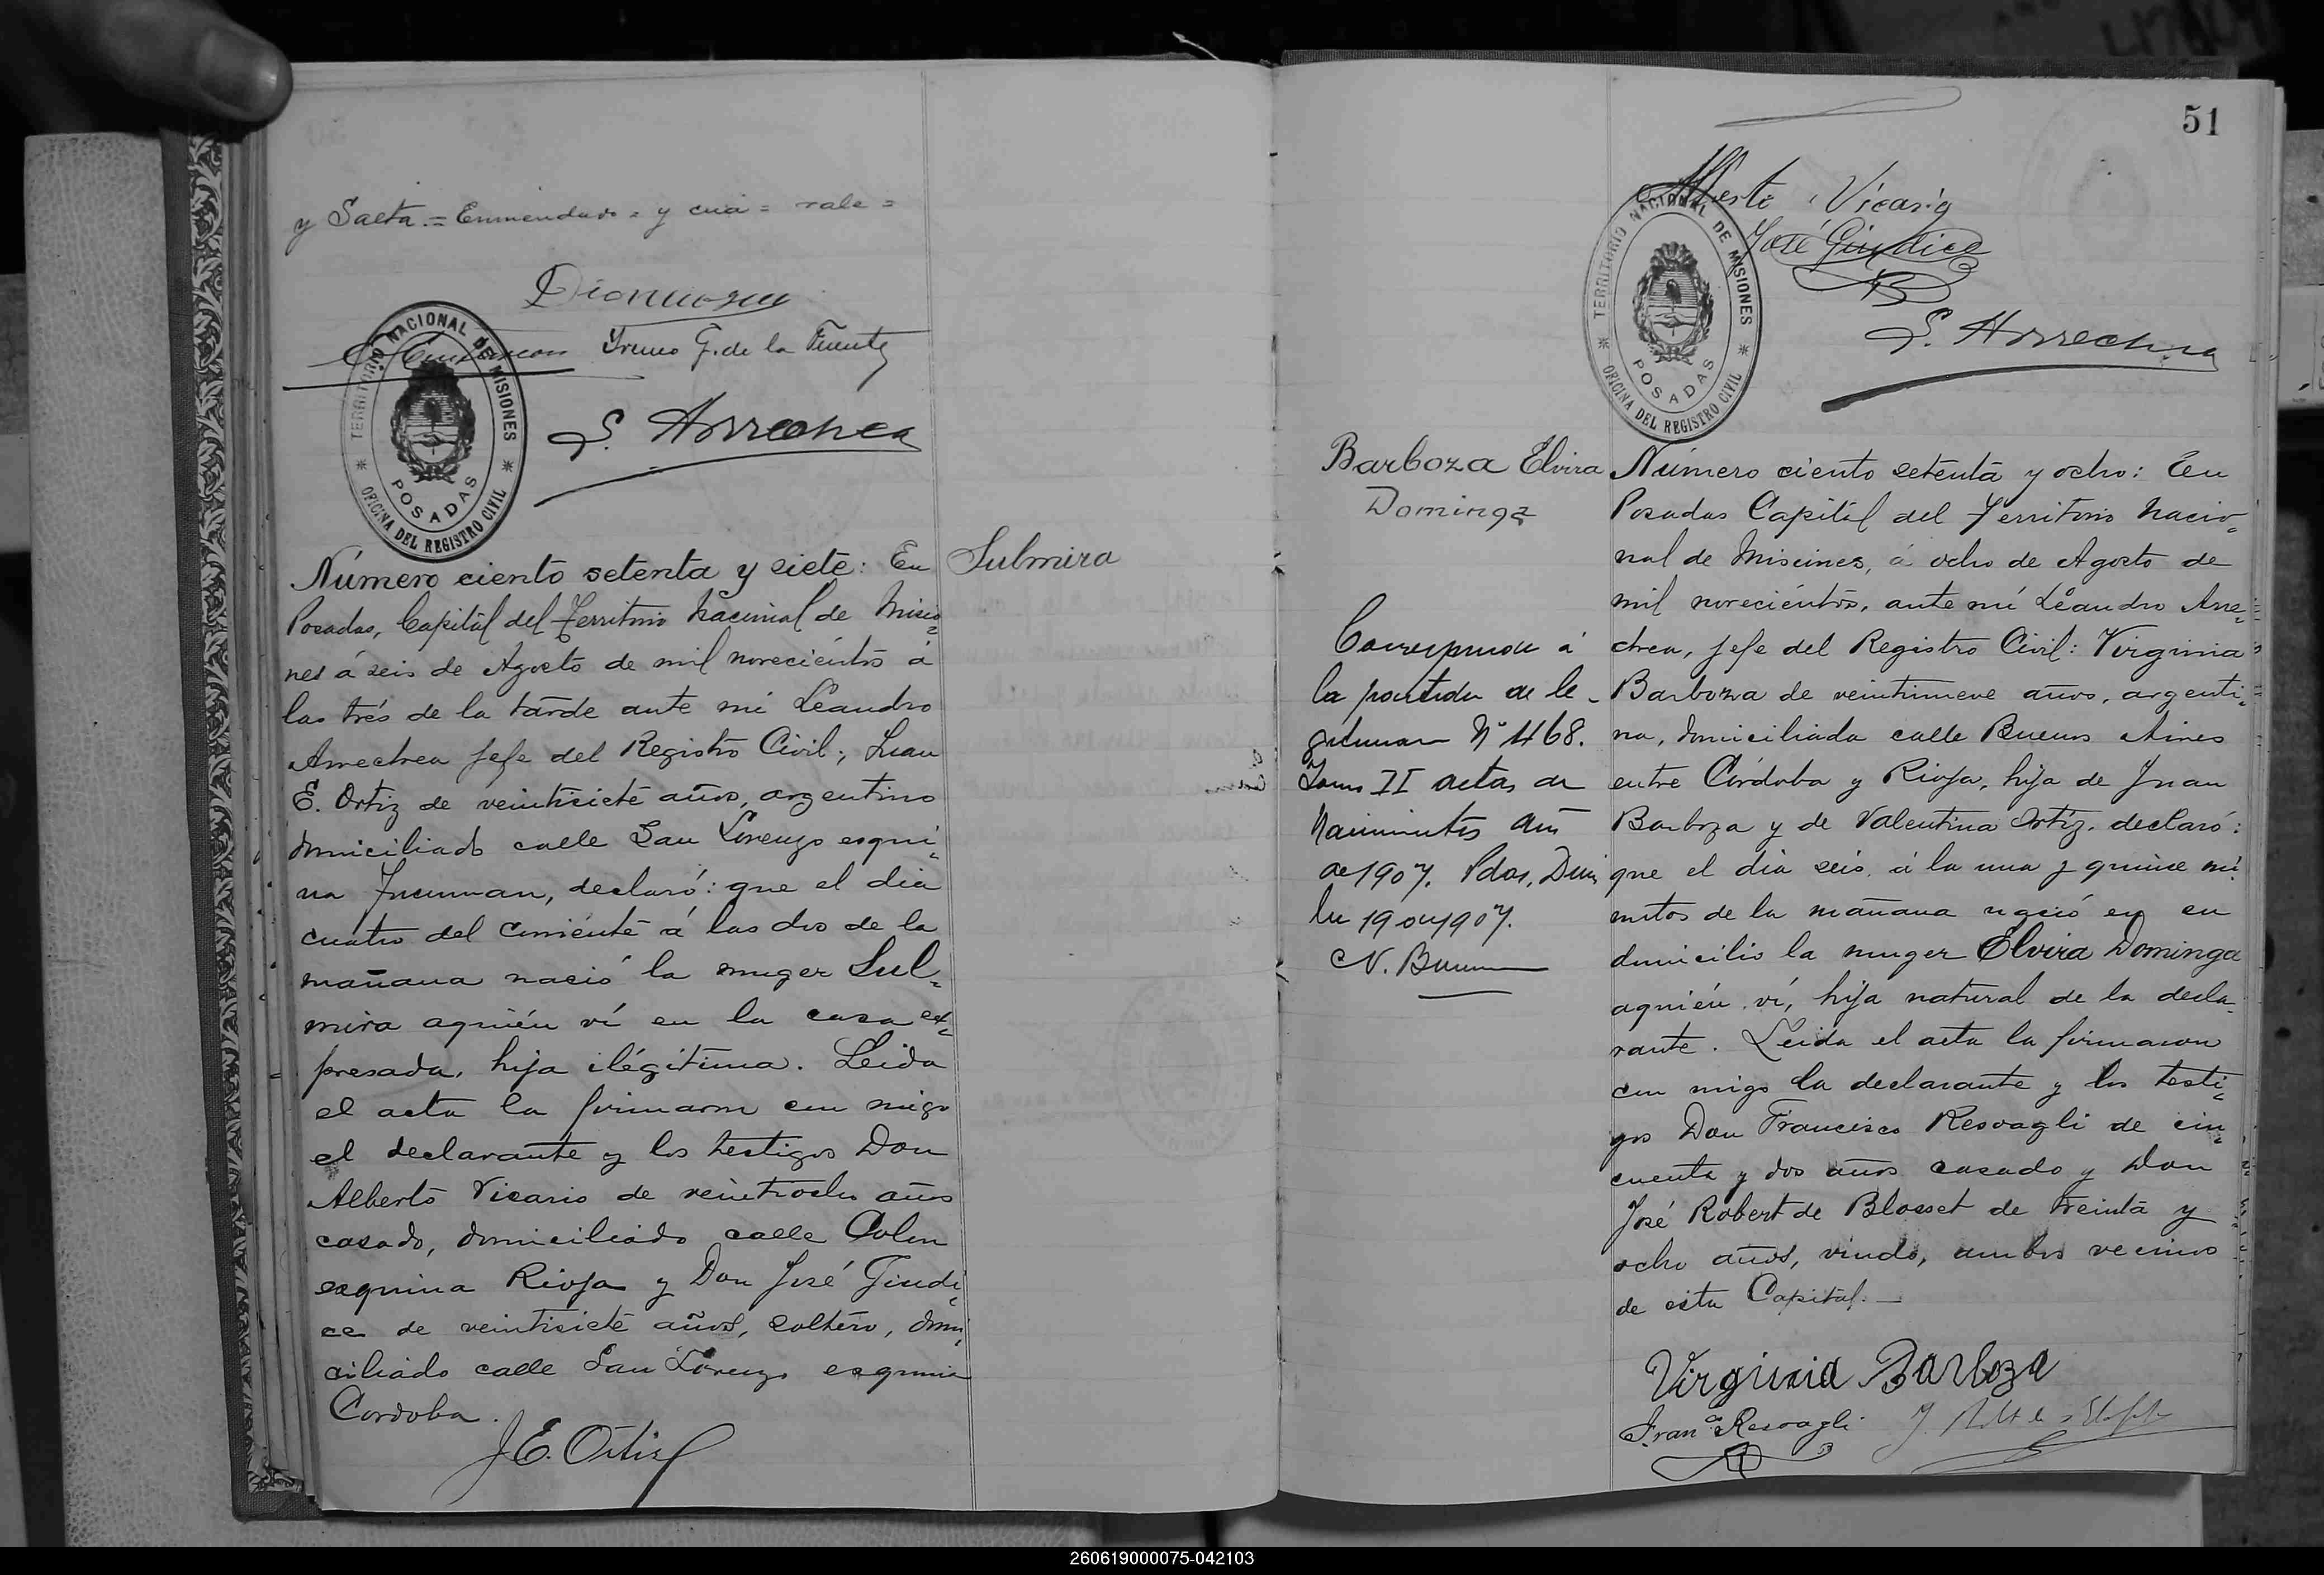 y Saeta.= Enmendado = y cua = vale =
Irineo G. de la Fuente
TERRITORIO NACIONAL DE MISIONES
POSADAS
OFICINA DEL REGISTRO CIVIL
L. Arrechea
Número ciento setenta y siete: En
Posadas, Capital del Territorio Nacional de Misio=
nes á seis de Agosto de mil novecientos á
las trés de la tarde ante mi Leandro
Arrechea Jefe del Registro Civil; Juan
E. Ortiz de veintisiete años, argentino
domiciliado calle San Lorenzo esqui=
na Tucuman, declaró: que el dia
cuatro del corriente á las dos de la
mañana nació la muger Sul=
mira aquién ví en la casa ex=
presada, hija ilégitima. Leida
el acta la firmaron con migo
el declarante y los testigos Don
Alberto Vicario de veintiocho años
casado, domiciliado calle Colon
esquina Rioja y Don José Giudi=
ce de veintisiete años, soltero, domi=
ciliado calle San Lorenzo esquina
Cordoba.
J. E. Ortiz
Sulmira
51
Alberto Vicario
José Giudice
TERRITORIO NACIONAL DE MISIONES
POSADAS
OFICINA DEL REGISTRO CIVIL
L. Arrechea
Barboza Elvira
Dominga
Corresponde á
la partida de le-
gitimacion Nº 468.
Tomo II actas de
Nacimientos año
de 1907. Pdas, Diciem
bre 19 de 1907.
Número ciento setenta y ocho: En
Posadas Capital del Territorio Nacio=
nal de Misiones, á ocho de Agosto de
mil novecientos, ante mí Leandro Arre=
chea, Jefe del Registro Civil: Virginia
Barboza de veintinueve años, argenti=
na, domiciliada calle Buenos Aires
entre Córdoba y Rioja, hija de Juan
Barboza y de Valentina Ortiz, declaró:
que el dia seis, á la una y quince mi=
nutos de la mañana nació en su
domicilio la muger Elvira Dominga
aquién ví, hija natural de la decla=
rante. Leida el acta la firmaron
con migo la declarante y los testi=
gos Don Francisco Resoagli de cin=
cuenta y dos años casado y Don
José Robert de Blosset de treinta y
ocho años, viudo, ambos vecinos
de esta Capital.—
Virginia Barboza
Franco Resoagli
260619000075-042103